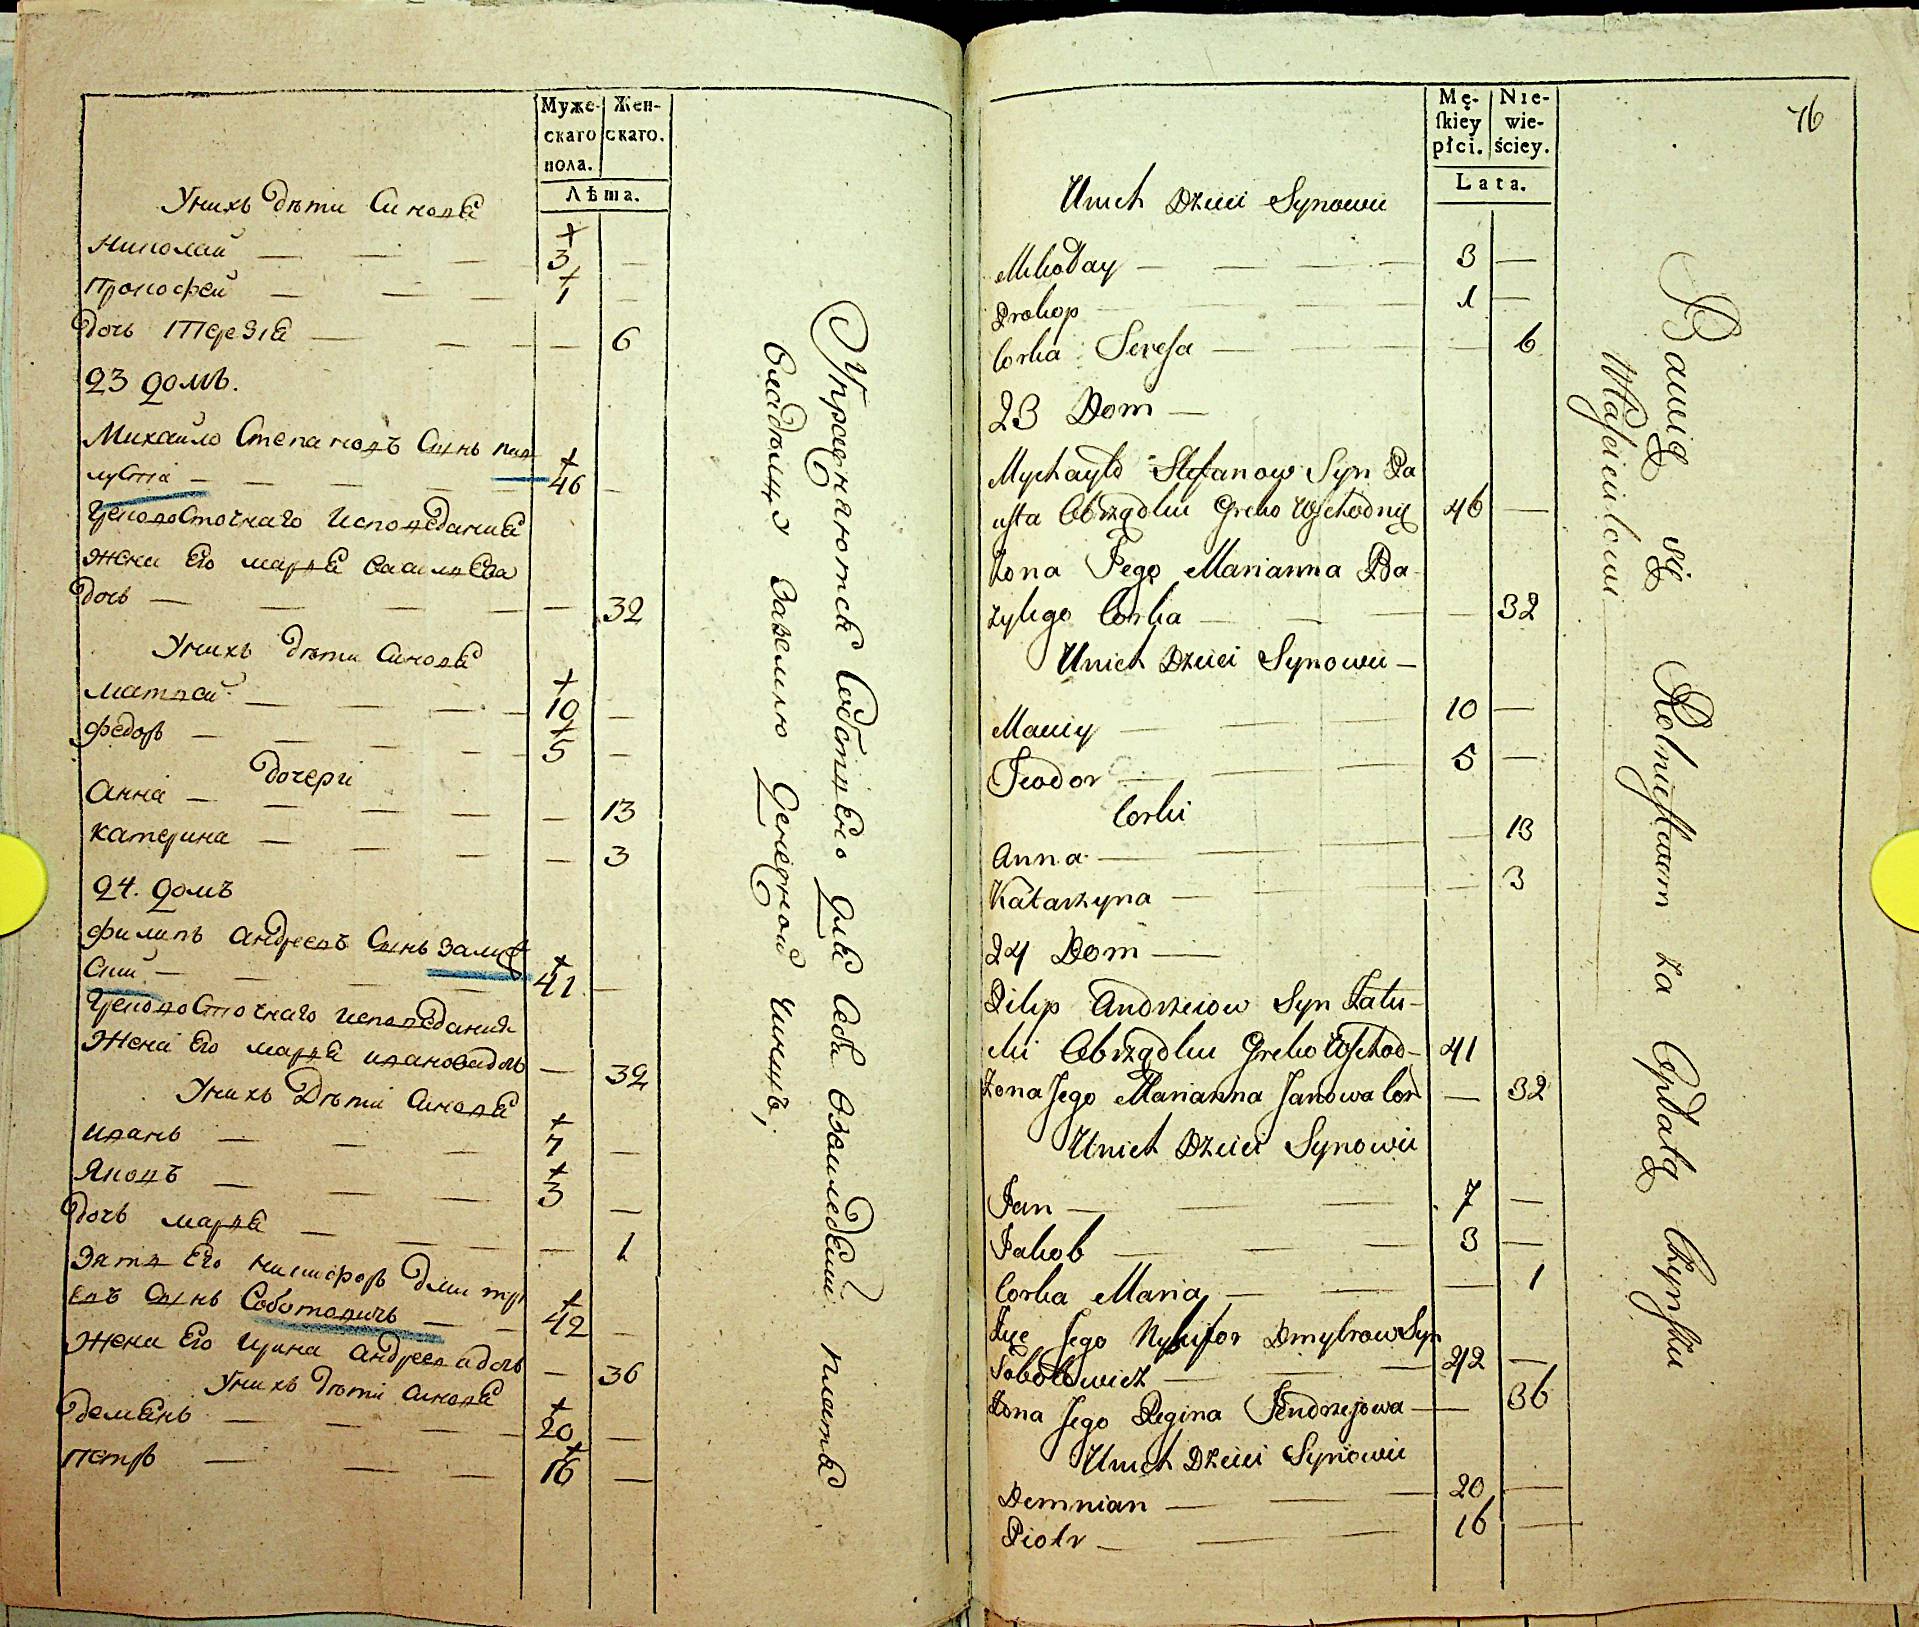 Муже-
скаго
пола.
Жен-
скаго.
Лѣта.
Унихъ дѣти Синовя
Николай — — — 3 —
Прокофей — — — 1 —
дочь Терезія — — — — 6
23 домъ.
Михайло Степановъ Сынь Пал
луста — — — — 46 —
Грековосточнаго Исповеданія
Жена Его маря Василева
дочь — — — — — 32
Унихъ дѣти Синовя
матвей — — — — 10 —
Федоръ — — — — 5 —
дочери
Анна — — — — — 13
катерина — — — — 3
24. домъ
Филипъ Андреевъ Сынь Залус
Ский — — — — 41 —
Грековосточнаго исповедания
Жена Его маря иванова дочь — 32
Унихъ Дѣти Синовя
иванъ — — — 7 —
Яковъ — — — 3 —
дочь маря — — — — 1
Зять Его никифоръ Дмитрі
евъ Сынь Соботовичъ — — 42 —
Жена Его ирина Андреева дочь — 36
Унихъ дѣти синовя
демянъ — — — 20 —
Петръ — — — 16 —
Упражняются Собственно для себя Вземледелии платя
Владѣлцу Заземлю Денежной чиншъ,
76
Mę-
ſkiey
płci.
Nie-
wie-
ściey.
Lata.
Unich Dzieci Synowie
Mikołay — — — 3 —
Prokop — — — 1 —
Corka Teresa — — — — 6
23 Dom —
Mychayło Stefanow Syn Pa
usta Obrządku Greko Wschodnię 46 —
Żona Jego Marianna Ba
zylego Corka — — — — 32
Unich Dzieci Synowie —
Maciey — — — 10 —
Teodor — — — 5 —
Corki
Anna — — — — 13
Katarzyna — — — — 3
24 Dom —
Filip Andrzeiow Syn Zału-
ski Obrządku Greko Wschod- 41
Żona Jego Marianna Janowa Cor — 32
Unich Dzieci Synowie
Jan — — — 7 —
Jakob — — — 3 —
Corka Maria — — — 1
Zięc Jego Nykifor Dmytrow Syn
Sobotowicz — — 42 —
Żona Jego Regina Jendrzejowa — — 36
Unich Dzieci Synowie
Demnian — — — 20 —
Piotr — — — 16 —
Bawią się Rolnictwem za Opłatą Czynszu
Właścicielowi